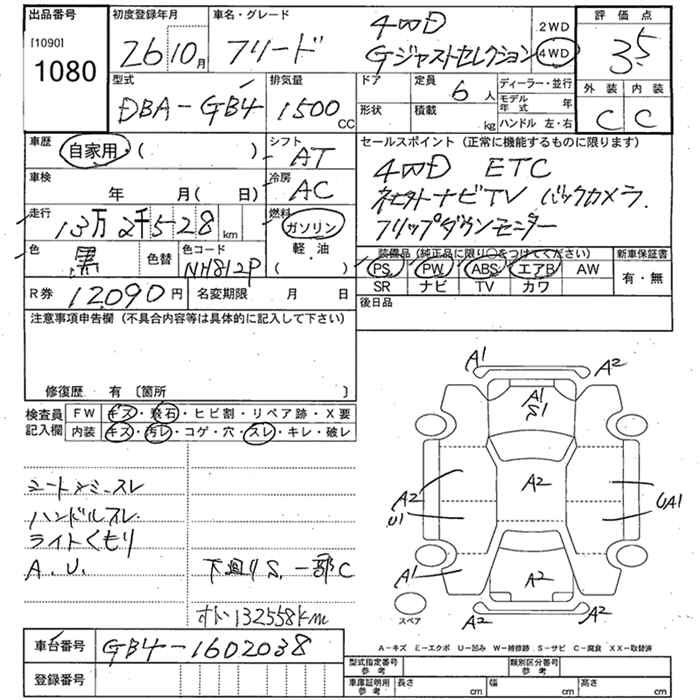 出品番号 初度登録年月 車名・グレード 評価点
[1090] 1080
26年10月 フリード 4WD Gジャストセレクション 2WD 4WD 3.5
型式 排気量 ドア 定員 ディーラー・並行 外装 内装
DBA-GB4 1500 CC 6人 モデル年式 年 C C
形状 積載 kg ハンドル 左・右
車歴 自家用 ( ) シフト AT セールスポイント (正常に機能するものに限ります)
車検 年 月( 日) 冷房 AC 4WD ETC
ナビTV バックカメラ
走行 13万2千528km 燃料 ガソリン フリップダウンモニター
軽・油
( )
色 黒 色替 色コード NH812P
装備品 (純正品に限り○をつけてください) 新車保証書
PS PW ABS エアB AW 有・無
SR ナビ TV カワ
R券 12,090円 名変期限 月 日 後日品
注意事項申告欄 (不具合内容等は具体的に記入して下さい)
修復歴 有 〔箇所 〕
検査員 FW キズ・飛石・ヒビ割・リペア跡・X要
記入欄 内装 キズ・汚レ・コゲ・穴・スレ・キレ・破レ
シートシミ・スレ
ハンドルスレ
ライトくもり
A.U. 下廻りS.一部C
132558km
A1 A2
A1
S1
A2
A2
U1
UA1
A1
A2
A2 A2
スペア
A-キズ E-エクボ U-凹み W-補修跡 S-サビ C-腐食 XX-取替済
車台番号 GB4-1602038
登録番号
型式指定番号 参考 類別区分番号 参考
車庫証明用 参考 長さ cm 幅 cm 高さ cm